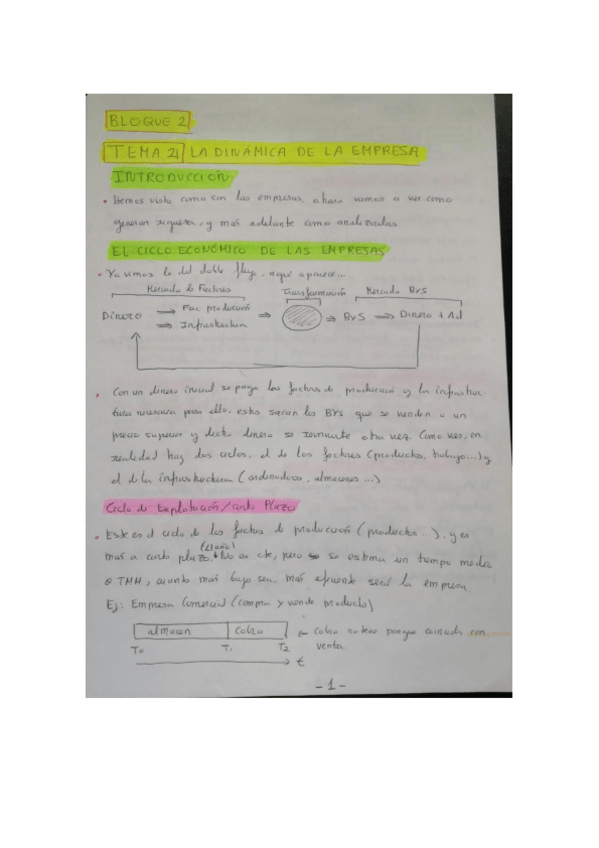 BLOQUE 2
TEMA 2 LA DINÁMICA DE LA EMPRESA
INTRODUCCIÓN
• Hemos visto como son las empresas, ahora vamos a ver como
generan riqueza, y más adelante como analizarlas
EL CICLO ECONÓMICO DE LAS EMPRESAS
• Ya vimos lo del doble flujo, aquí aparece...
Mercado de Factores Transformación Mercado BYS
Dinero ⇒ Fac producción ⇒ ⇒ BYS ⇒ Dinero + Ad
⇒ Infraestructura
• Con un dinero inicial se paga los factores de producción y la infraestruc-
tura necesaria para ello, estos sacan los BYS que se venden a un
precio superior y dicho dinero se reinvierte otra vez. Como ves, en
realidad hay dos ciclos, el de los factores (productos, trabajo...) y
el de la infraestructura (ordenadores, almacenes...)
Ciclo de Explotación / corto Plazo
• Este es el ciclo de los factores de producción (productos...), y es
(<1 año)
más a corto plazo. No es cte, pero se estima un tiempo medio
o TMM, cuanto más bajo sea, más eficiente será la empresa
Ej: Empresa Comercial (compra y vende producto)
almacen cobro ← Cobro no tiene porque coincidir con
T0 T1 T2 venta.
t
- 1 -